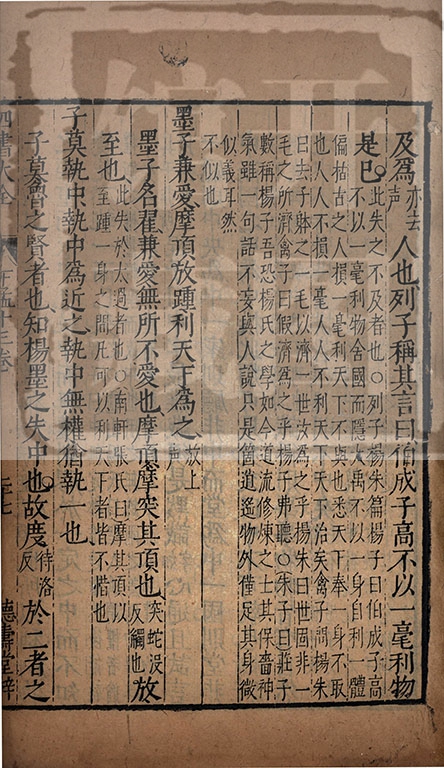 及爲亦去聲人也列子稱其言曰伯成子高不以一毫利物
是已此失之不及者也○列子楊朱篇楊子曰伯成子高
不以一毫利物舍國而隱大禹不以一身自利一體
偏枯古之人損一毫利天下不與也悉天下奉一身不取
也人人不損一毫人人不利天下天下治矣禽子問楊朱
曰去子躰之一毛以濟一世女爲之乎楊朱曰世固非一
毛之所濟禽子曰假濟爲之乎楊子弗聽○朱子曰莊子
數稱楊子吾恐楊氏之學如今道流修煉之士其保嗇神
氣雖一句話不妄與人說只是箇逍遙物外僅足其身微
似義耳然
不似也
墨子兼愛摩頂放踵利天下爲之放上聲
墨子名翟兼愛無所不愛也摩頂摩突其頂也突蛇没反觸也放
至也此失於太過者也○南軒張氏曰摩其頂以
至踵一身之間凡可以利天下者皆不惜也
子莫執中執中爲近之執中無權猶執一也
子莫魯之賢者也知楊墨之失中也故度待洛反於二者之
四書大全 下孟十三卷 二十七 德壽堂梓